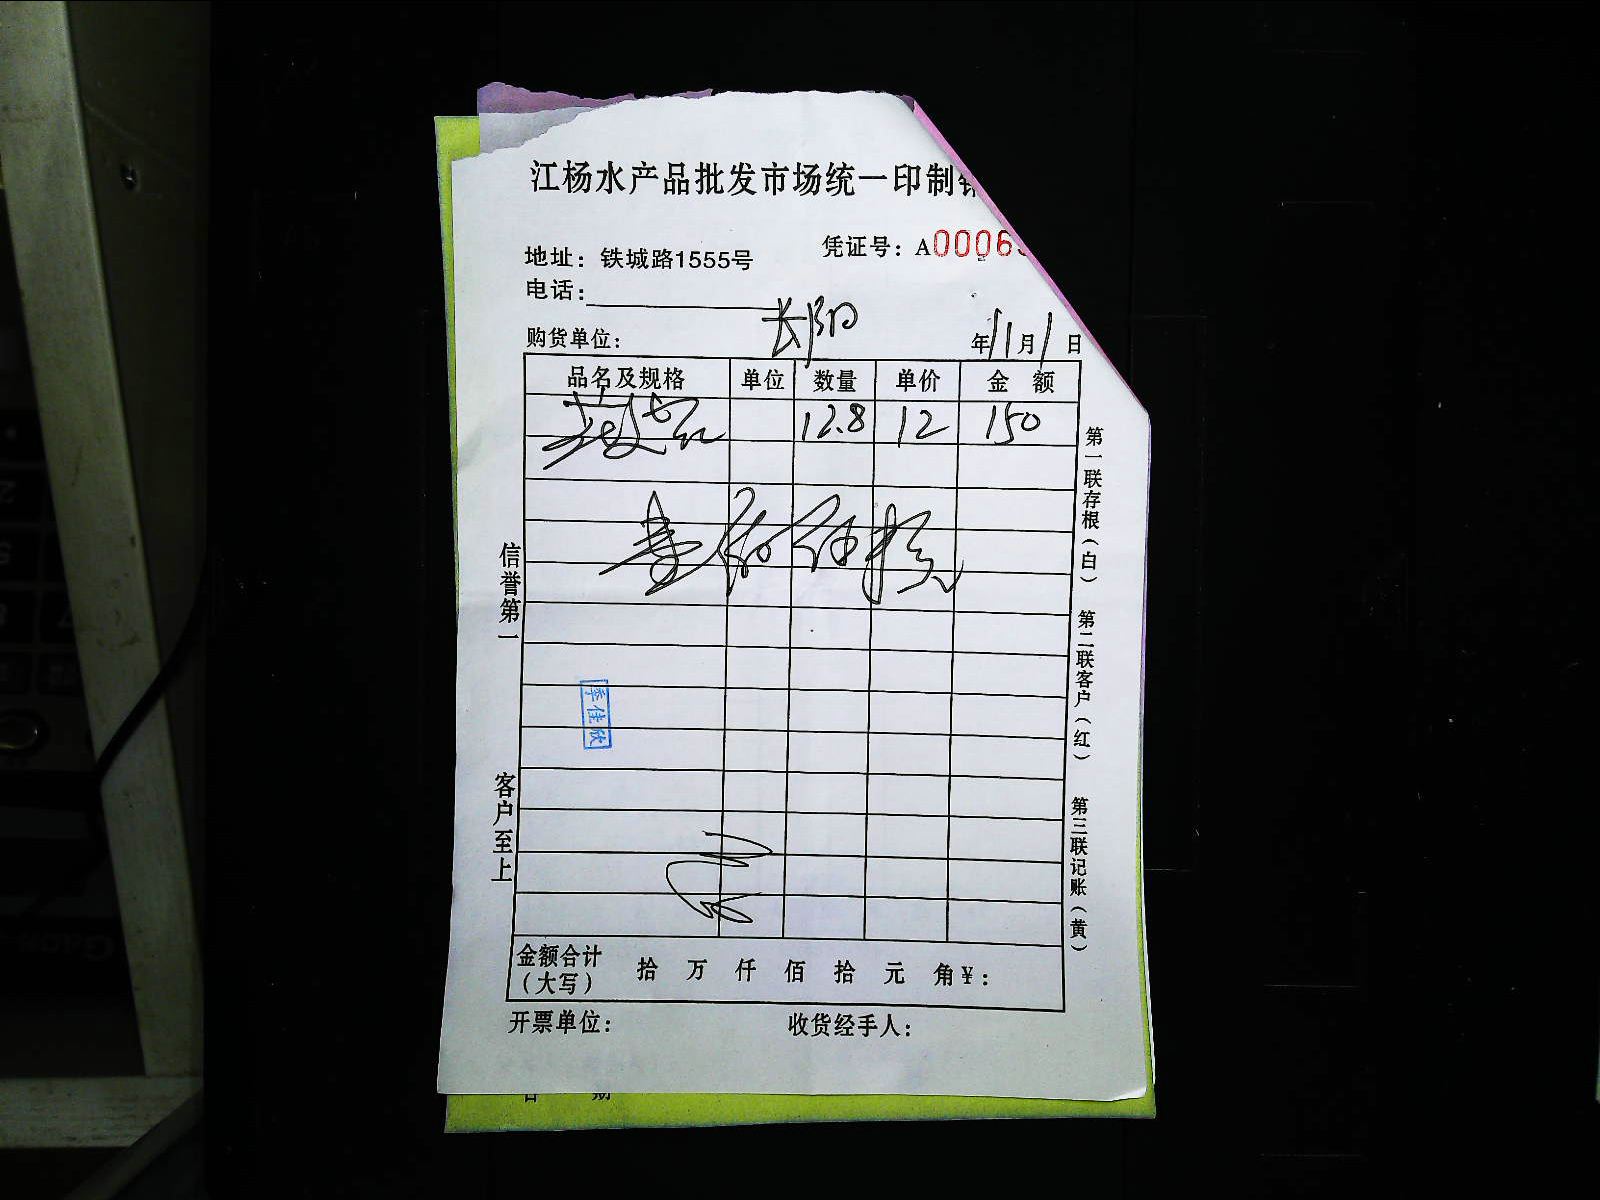 江杨水产品批发市场统一印制
凭证号：A0006
地址：铁城路1555号
电话：
购货单位： 长阳 年11月1日
品名及规格 单位 数量 单价 金额
12.8 12 150
季佳欣
金额合计（大写） 拾 万 仟 佰 拾 元 角 ¥：
开票单位： 收货经手人：
信誉第一
客户至上
第一联存根（白）
第二联客户（红）
第三联记账（黄）